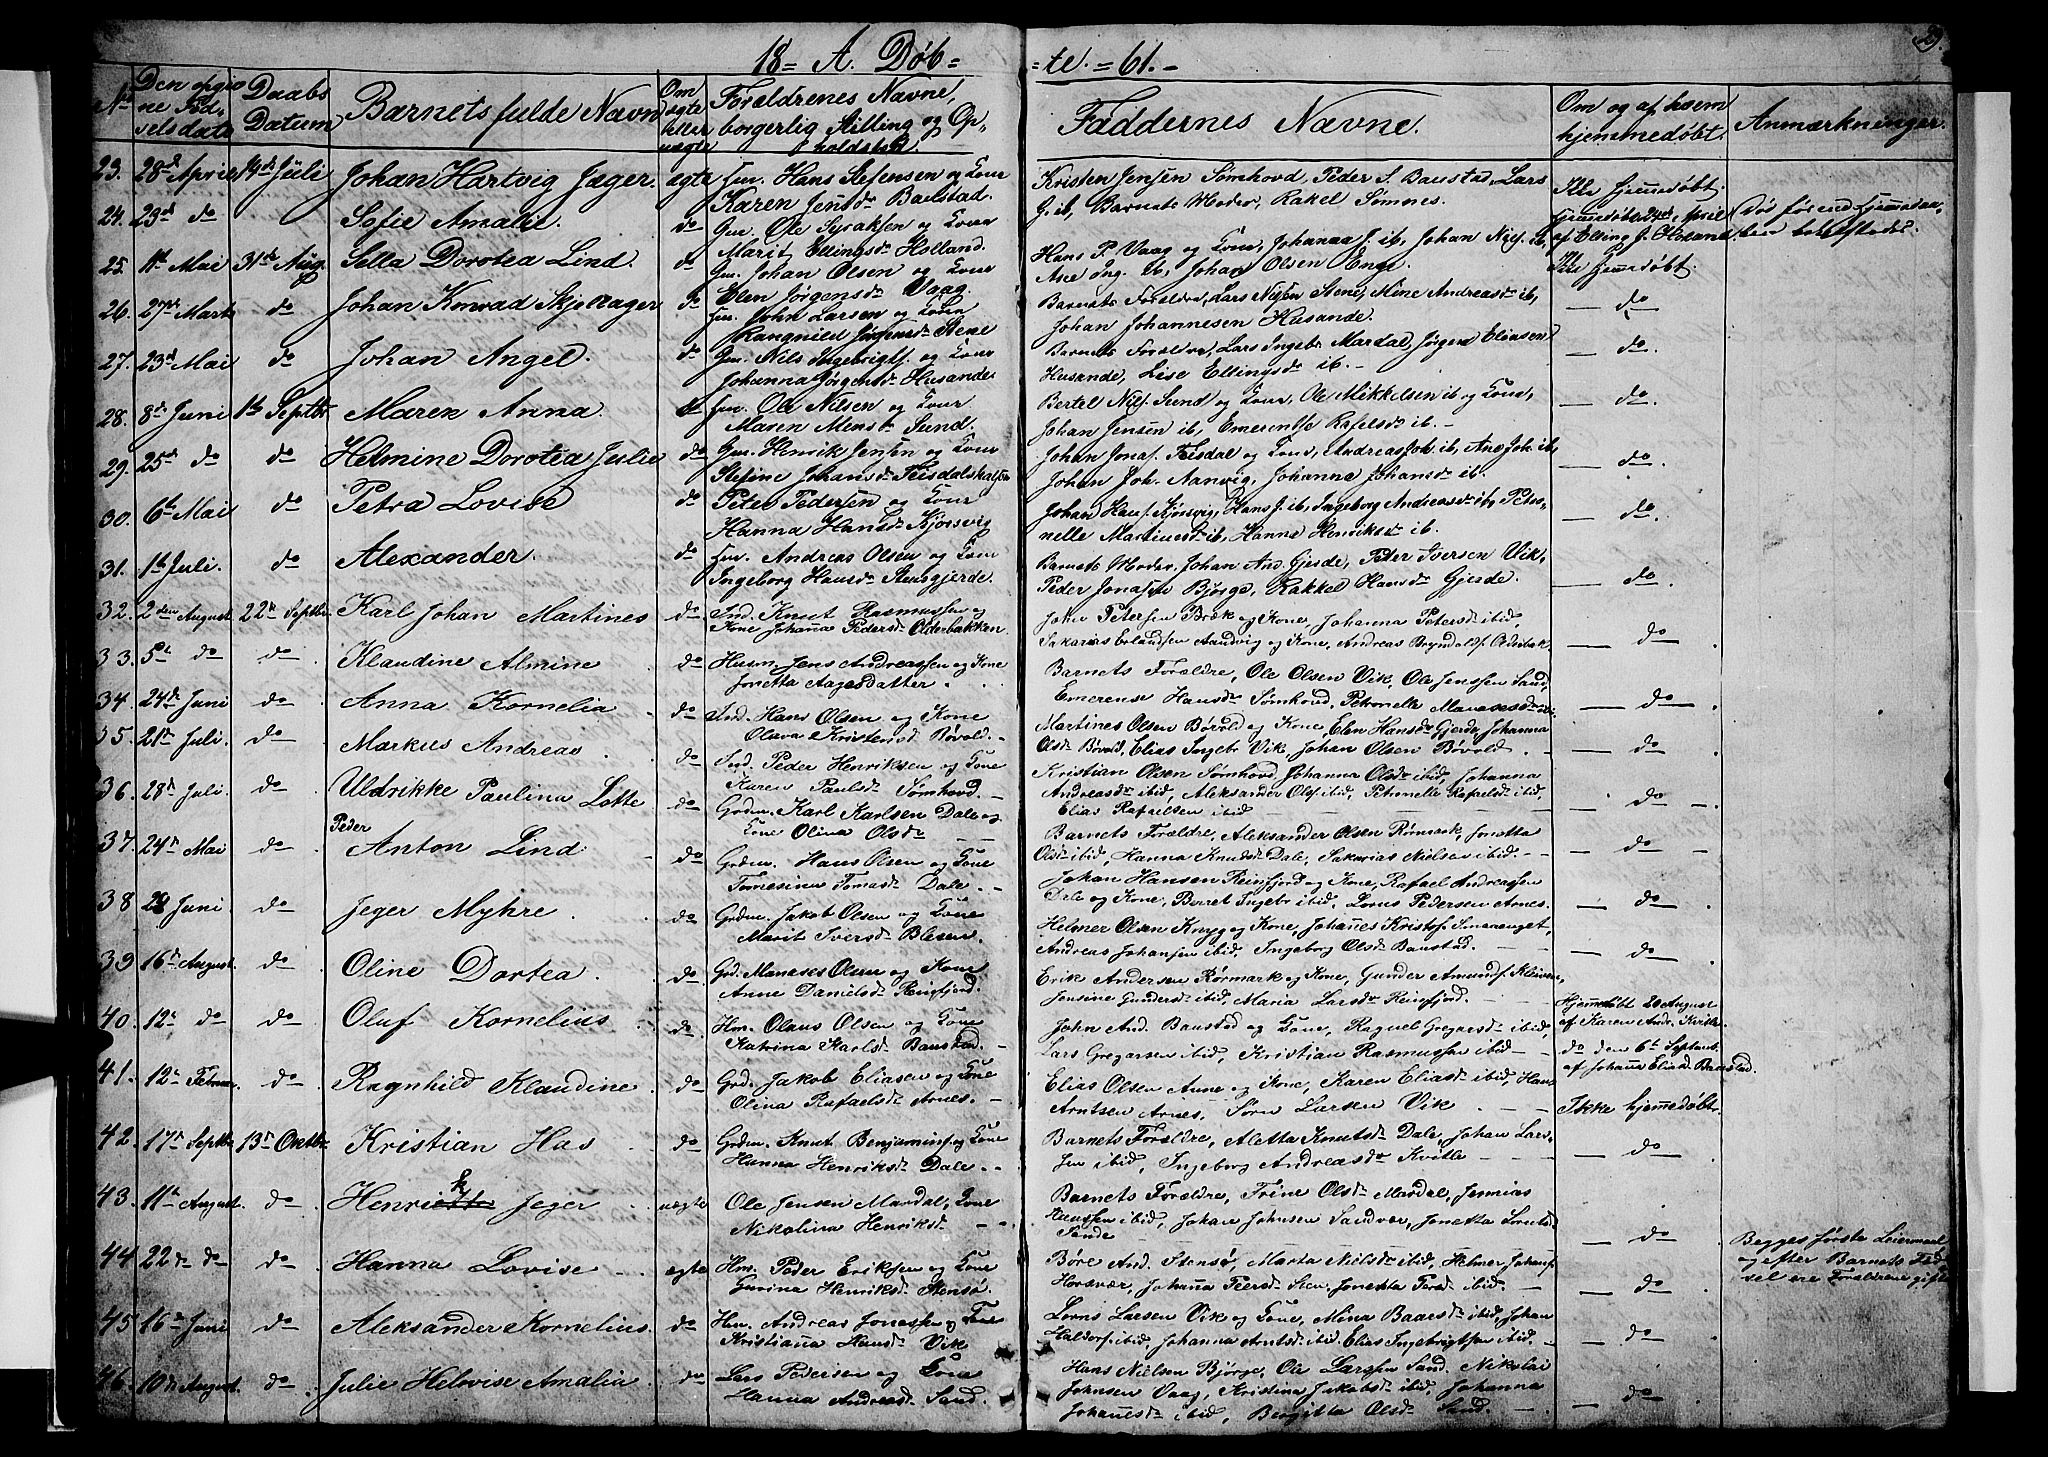 18 = A. Døb = = te. = 61. =
29.
No
Den opgivne Fødselsdato
Daabs Datum
Barnets fulde Navn
Om ægte eller uægte
Forældrenes Navne, borgerlig Stilling og Opholdsted.
Faddernes Navne.
Om og af hvem hjemmedøbt.
Anmærkninger.
23. 28d April 14de Juli Johan Hartvig Jæger. ægte Hans Stefensen og Kone
Karen Jensd. Baustad.
Kristen Jensen Sømhovd, Peder S. Baustad, Lars
J. ib, Barnets Moder, Rakel Sømnes.
Ikke hjemmedøbt.
24. 23d do Sefie Amalie. do Gm. Ole Syraksen og Kone
Marit Ellingsd. Holland.
Hjemmedøbt 24de April
af Elling J. Holand
Død førend Hjemmedaaben bekræftedes.
25. 11t Mai 31te Aug Sella Dorotea Lind. do Gm. Johan Olsen og Kone
Elen Jørgensd. Vaag.
Hans P. Vaag og Kone, Johanna J. ib, Johan Nilss. ib,
Ane Ing. ib, Johan Olsen Enge.
Ikke hjemmedøbt.
26. 27de Marts do Johan Konrad Skjelrager do John Larsen og Kone
Rangnild Jørgensd. Stene
Barnets Forældre, Lars Nilsen Stene, Mine Andreasd. ib,
Johan Johannesen Husande.
— do
27. 23d Mai do Johan Angel. do Gm. Nils Ingebrigts. og Kone
Johanna Jørgensd. Husande
Barnets Forældre, Lars Ingebr. Mardal, Jørgen Eliasen
Husande, Lise Ellingsd. ib. —
— do.
28. 8de Juni 1te Septbr Maren Anna. do Ole Nilsen og Kone
Maren Monsd. Sund.
Bertel Nils. Sund og Kone, Ole Mikkelsen ib og Kone,
Johan Jensen ib, Emerentse Rafelsd. ib. —
— do.
29. 25de do do Helmine Dorotea Julie do Gm. Henrik Jensen og Kone
Stefine Johansd. Feisdalskalsen
Johan Jonas. Feisdal og Kone, Andreas Joh. ib, Ane Joh. ib,
Johan Joh. Aanvig, Johanne Johansd. ib.
— do.
30. 6te Mai do Petra Lovise do Peter Pedersen og Kone
Hanna Hansd. Kjørsvig
Johan Hans. Kjørsvig, Hans J. ib, Ingeborg Andreasd. ib, Petro-
nelle Martinesd. ib, Hanne Henriksd. ib.
— do.
31. 1te Juli. do Alexander. do Andreas Olsen og Kone
Ingeborg Hansd. Stensgjerde.
Barnets Moder, Johan And. Gjesde, Peter Iversen Vik,
Peder Jonasen Bjørge, Rakkel Hansd. Gjesde.
— do
32. 2den August 22de Septbr Karl Johan Martines do Ind. Knut Rasmussen og
Kone Johanna Pedersd. Olderbakken
John Petersen Bæk og Kone, Johanna Petersd. ibid,
Sakarias Erlandsen Aandvig og Kone, Andreas Bryndolds. Olderbak.
— do .
33. 5te do do. Klaudine Almine do Husm. Jens Andreassen og Kone
Jonetta Aagesdatter .
Barnets Forældre, Ole Olsen Vik, Ole Jenssen Sand,
Emerense Hansd. Sømhovd, Petronelle Manasesd.
— do .
34. 24de Juni do. Anna Kornelia do. Ind. Hans Olsen og Kone
Olava Kristensd. Børvold. —
Martines Olsen Børvold og Kone, Elen Hansd. Gjerde, Johanna
Olsd. Børvold, Elias Ingebr. Vik, Johan Olsen Børvold. —
— do .
35. 21de Juli. do — Markus Andreas . do Ind. Peder Henriksen og Kone
Karen Paulsd. Sømhovd. —
Kristian Olsen Sømhovd, Johanna Olsd. ibid, Johanna
Andreasd. ibid, Aleksander Ols. ibid, Petronelle Rafelsd. ibid,
Elias Rafaelsen ibid — —
— do .
36. 28de Juli. do — Uldrikke Paulina Lotte do Grdm. Karl Karlsen Dale og
Kone Olina Olsd. — —
Barnets Forældre, Aleksander Olsen Rørmark, Jonetta
Olsd. ibid, Hanna Knudsd. Dale, Sakarias Nielsen ibid. —
— do .
37. 24de Mai do — Peder Anton Lind — do Grdm. Hans Olsen og Kone
Tomesine Tomasd. Dale. —
Johan Hansen Reinfjord og Kone, Rafael Andreassen
Dale og Kone, Berret Ingebr. ibid, Lorns Pedersen Arnes.
— do .
38 28 Juni do — Jeger Myhre . do Grdm. Jakob Olsen og Kone
Marit Iversd. Blesen.
Helmer Olsen Knyg og Kone, Johannes Kristofs.
Andreas Johansen ibid, Ingeborg Olsd. Baustad. —
— do .
39 16de August. do — Oline Dortea . do Grd. Manases Olsen og Kone
Anne Danielsd. Reinfjord.
Erik Andersen Rørmark og Kone, Gunder Amunds. Kleiven,
Jensine Gundersd. ibid, Maria Larsd. Reinfjord. —
Hjemmedøbt 20 August
af Karen Andr. Kvitle
40. 12te do do Oluf Kornelius . do Hm. Olaus Olsen og Kone
Katrina Karlsd. Baustad. —
John And. Baustad og Kone, Raguel Gregaesd. ibid,
Lars Gregarsen ibid, Kristian Rasmussen ibid —
do den 6te Septemb.
af Johanna Eliasd. Baustad.
41. 12te Februar do . Ragnhild Klaudine . do Grd. Jakob Eliasen og Kone
Olina Rafaelsd. Arnes. —
Elias Olsen Anne og Kone, Karen Eliasd. ibid, Hans
Arntsen Arnes, Sørn Larsen Vik — —
Ikke hjemedøbt.
42. 17de Septbr 13de Oktbr Kristian Has . do Grdm. Knut Benjamins. og Kone
Hanna Henriksd. Dale. —
Barnets Forældre, Aletta Knutsd. Dale, Johan Lars-
sen ibid, Ingeborg Andreasd. Kvitle —
— do .
43. 11te August. do . Henrik Jeger . uægte Ole Jensen Mardal, Kone
Nikolina Henriksd. — —
Barnets Forældre, Trine Olsd. Mardal, Jennias
Hanssen ibid, Johan Johnsen Sandvær, Jonetta
Sande — —
— do .
Begges første Leiermaal
og efter Barnets Fød-
sel ere Forældrene gifte
44 22de do do . Hanna Lovise . ægte Hm. Peder Eriksen og Kone
Gurina Henriksd. Stensø.
Børe And. Stensø, Marta Nielsd. ibid, Helmer Johans.
Horsvær, Johanna Peersd. Sten, Jonetta Persd. ibid. —
— do .
45 16de Juni do . Aleksander Kornelius. do Hm. Andreas Jonassen og Kone
Kristiana Hansd. Vik
Lorns Larsen Vik og Kone, Mina Baaesd. ibid, Johan
Haldors. ibid, Johanna Arntsd. ibid. Elias Ingebrigtsen ibid.
— do .
46. 10de August. do . Julie Helvise Amalia . do Lars Pedersen og Kone
Hanna Andreasd. Sand.
Hans Nielsen Bjørge, Ole Larssen Sand. Nikolai
Johnsen Vaag, Kristina Jakobsd. ibid, Johanna
Johannesd. ibid, Bergitta Olsd. Sand. —
— do .